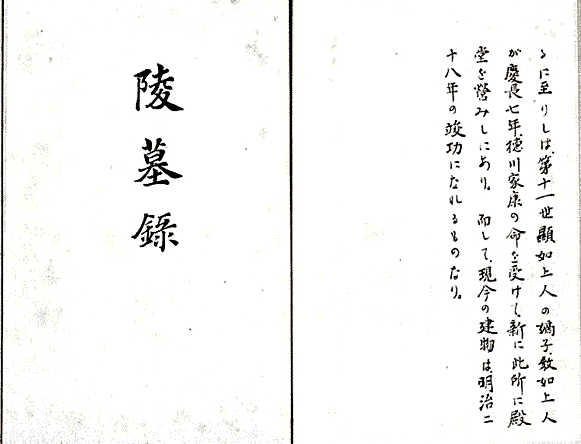 るに至りしは、第十一世顯如上人の嫡子、敎如上人
が慶長七年、徳川家康の命を受けて、新に此所に殿
堂を營みしにあり。而して、現今の建物は、明治二
十八年の竣功になれるものなり。
陵墓録